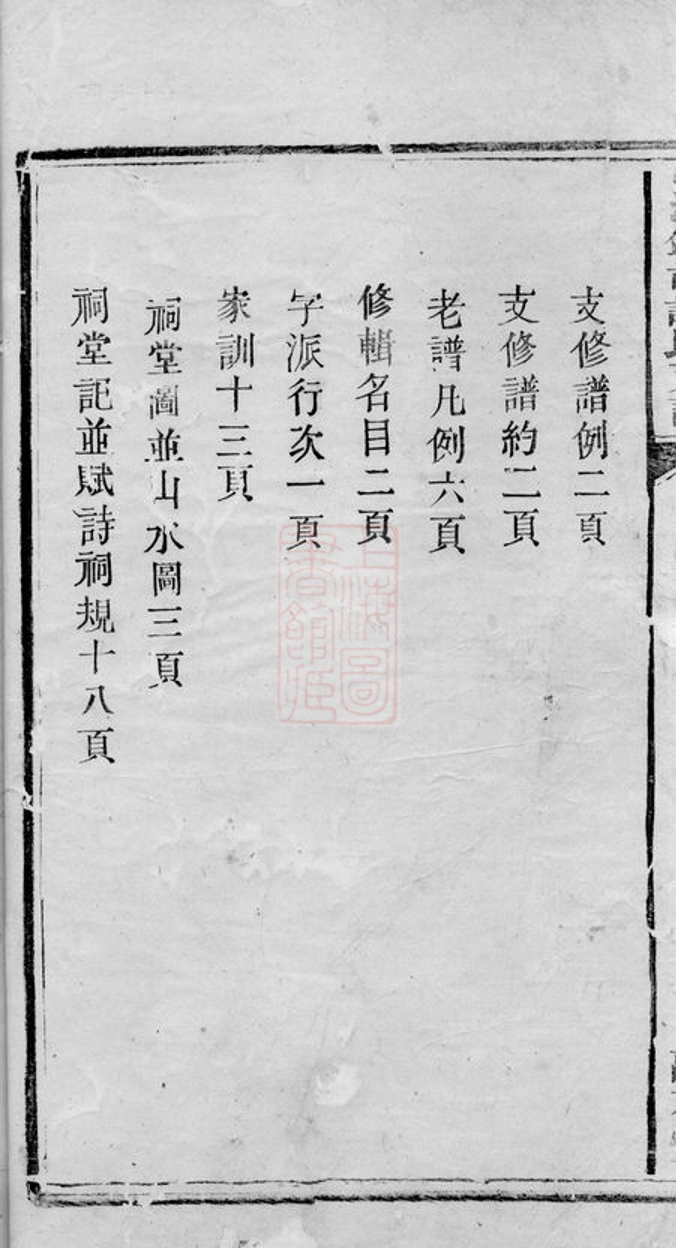 支修譜例二頁
支修譜約二頁
老譜凡例六頁
修輯名目二頁
字派行次一頁
家訓十三頁
祠堂圖並山水圖三頁
祠堂記並賦詩祠規十八頁
上海圖
書館藏